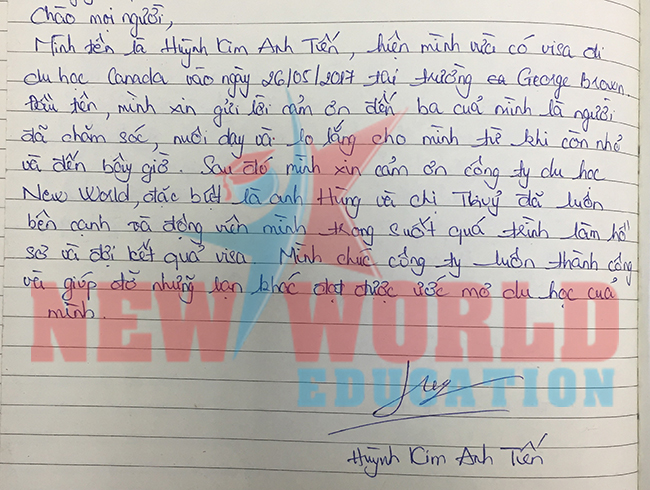 Chào mọi người,
Mình tên là Huỳnh Kim Anh Tiến, hiện mình vừa có visa đi
du học Canada vào ngày 26/05/2017 tại trường ca George Brown.
Đầu tiên, mình xin gửi lời cảm ơn đến ba của mình là người
đã chăm sóc, nuôi dạy và lo lắng cho mình từ khi còn nhỏ
và đến bây giờ. Sau đó mình xin cảm ơn công ty du học
New World, đặc biệt là anh Hùng và chị Thuỷ đã luôn
bên cạnh và động viên mình trong suốt quá trình làm hồ
sơ và đợi kết quả visa. Mình chúc công ty luôn thành công
và giúp đỡ những bạn khác đạt được ước mơ du học của
mình.
NEW WORLD
EDUCATION
Huỳnh Kim Anh Tiến